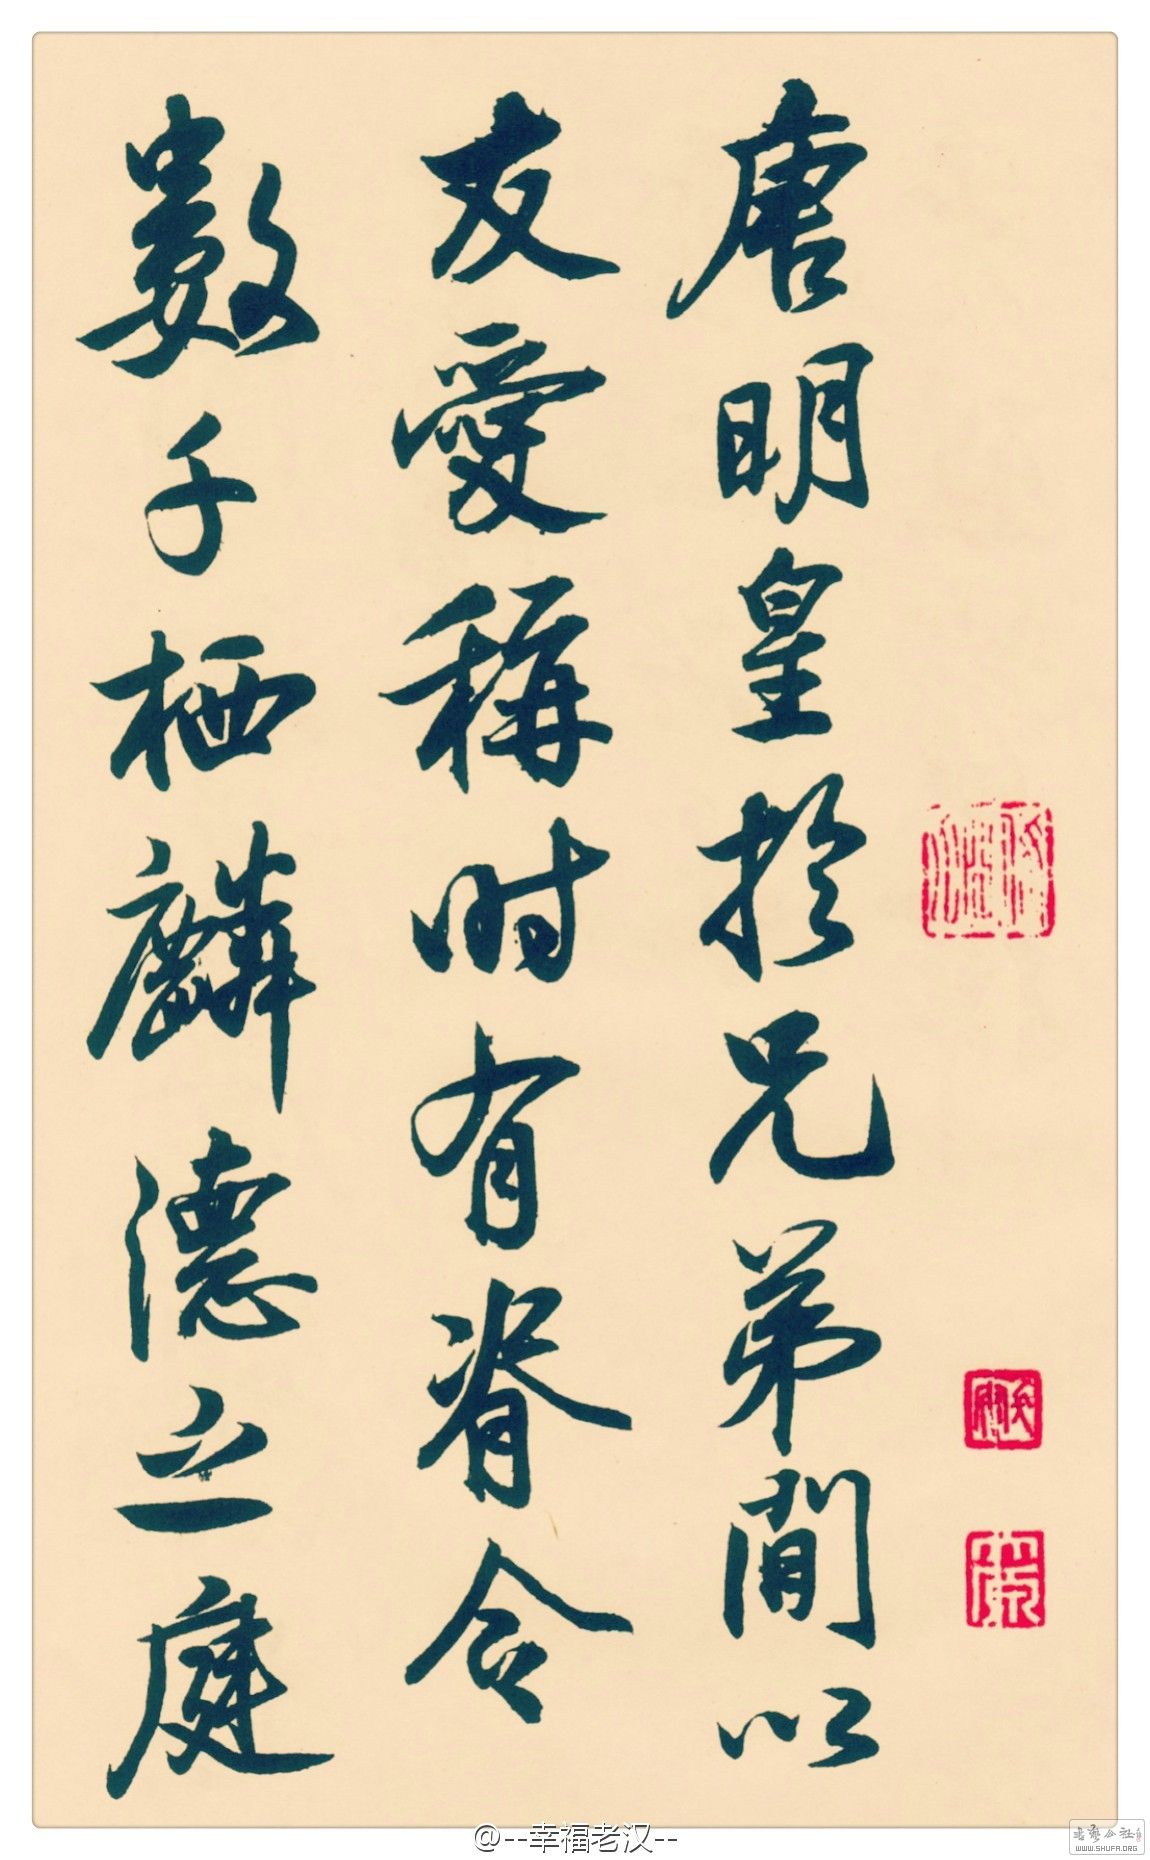 唐明皇於兄弟間以
友愛稱时有脊令
數千栖麟德之庭
@--幸福老汉--
书艺公社
www.SHUFA.ORG